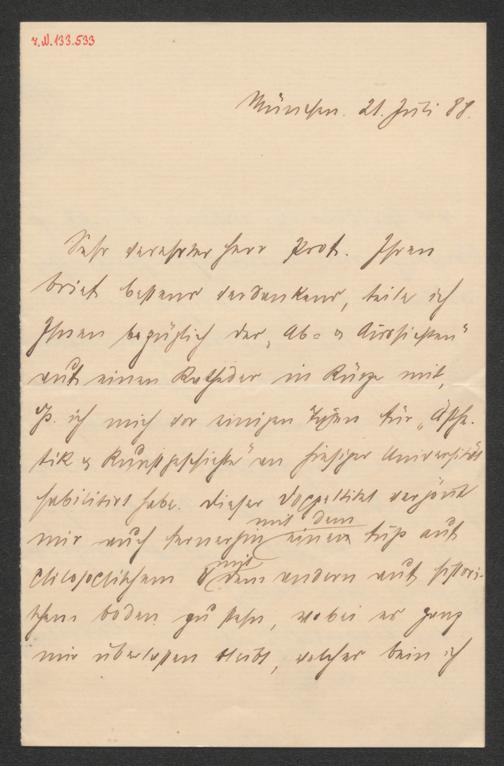 r.N.133.533
München. 21. Juli 88.
Sehr verehrter Herr Prof. Ihren
Brief bestens verdankend, teile ich
Ihnen bezüglich der „Ab- & Aussichten"
auf einen Katheder in Kürze mit,
dß ich mich vor einigen Tagen für „Ästhe-
tik & Kunstgeschichte" an hiesiger Universität
habilitirt habe. Dieser Doppeltitel vergönnt
mir auch fernerhin mit dem einen Fuß auf
philosophischem & mit dem andern auf histori-
schem Boden zu stehn, wobei es ganz
mir überlassen bleibt, welches Bein ich